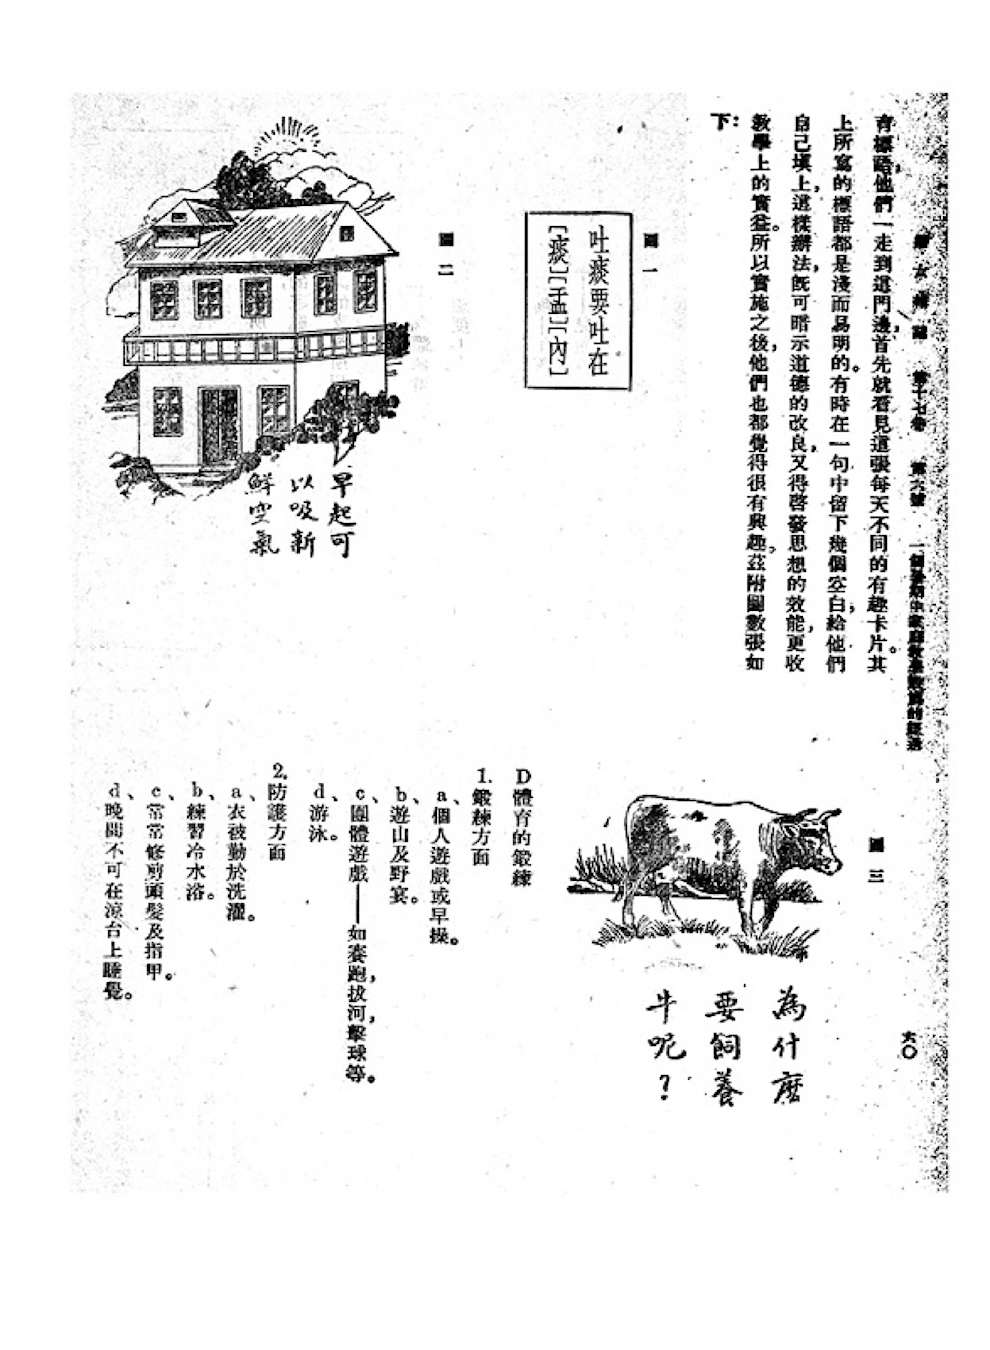 婦女雜誌　第十七卷　第六號
六〇
有標語,他們一走到這門邊,首先就看見這張每天不同的有趣卡片。其
上所寫的標語都是淺而易明的。有時在一句中留下幾個空白,給他們
自己填上,這樣辦法,既可暗示道德的改良,又得啓發思想的效能,更收
教學上的實益。所以實施之後,他們也都覺得很有興趣。茲附圖數張如
下:
圖一
吐痰要吐在
[痰][盂][內]
圖二
早起可
以吸新
鮮空氣
圖三
為什麼
要飼養
牛呢?
D 體育的鍛練
1. 鍛練方面
a、個人遊戲或早操。
b、遊山及野宴。
c、團體遊戲——如賽跑,拔河,擊球等。
d、游泳。
2. 防護方面
a、衣被勤於洗濯。
b、練習冷水浴。
c、常常修剪頭髮及指甲。
d、晚間不可在涼台上睡覺。